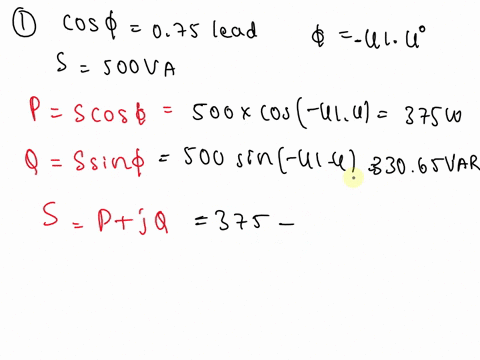 ① cosϕ = 0.75 lead ϕ = -41.4°
S = 500VA
P = Scosϕ = 500 x cos(-41.4) = 375W
Q = Ssinϕ = 500 sin(-41.4) = 330.65VAR
S = P+jQ = 375 -